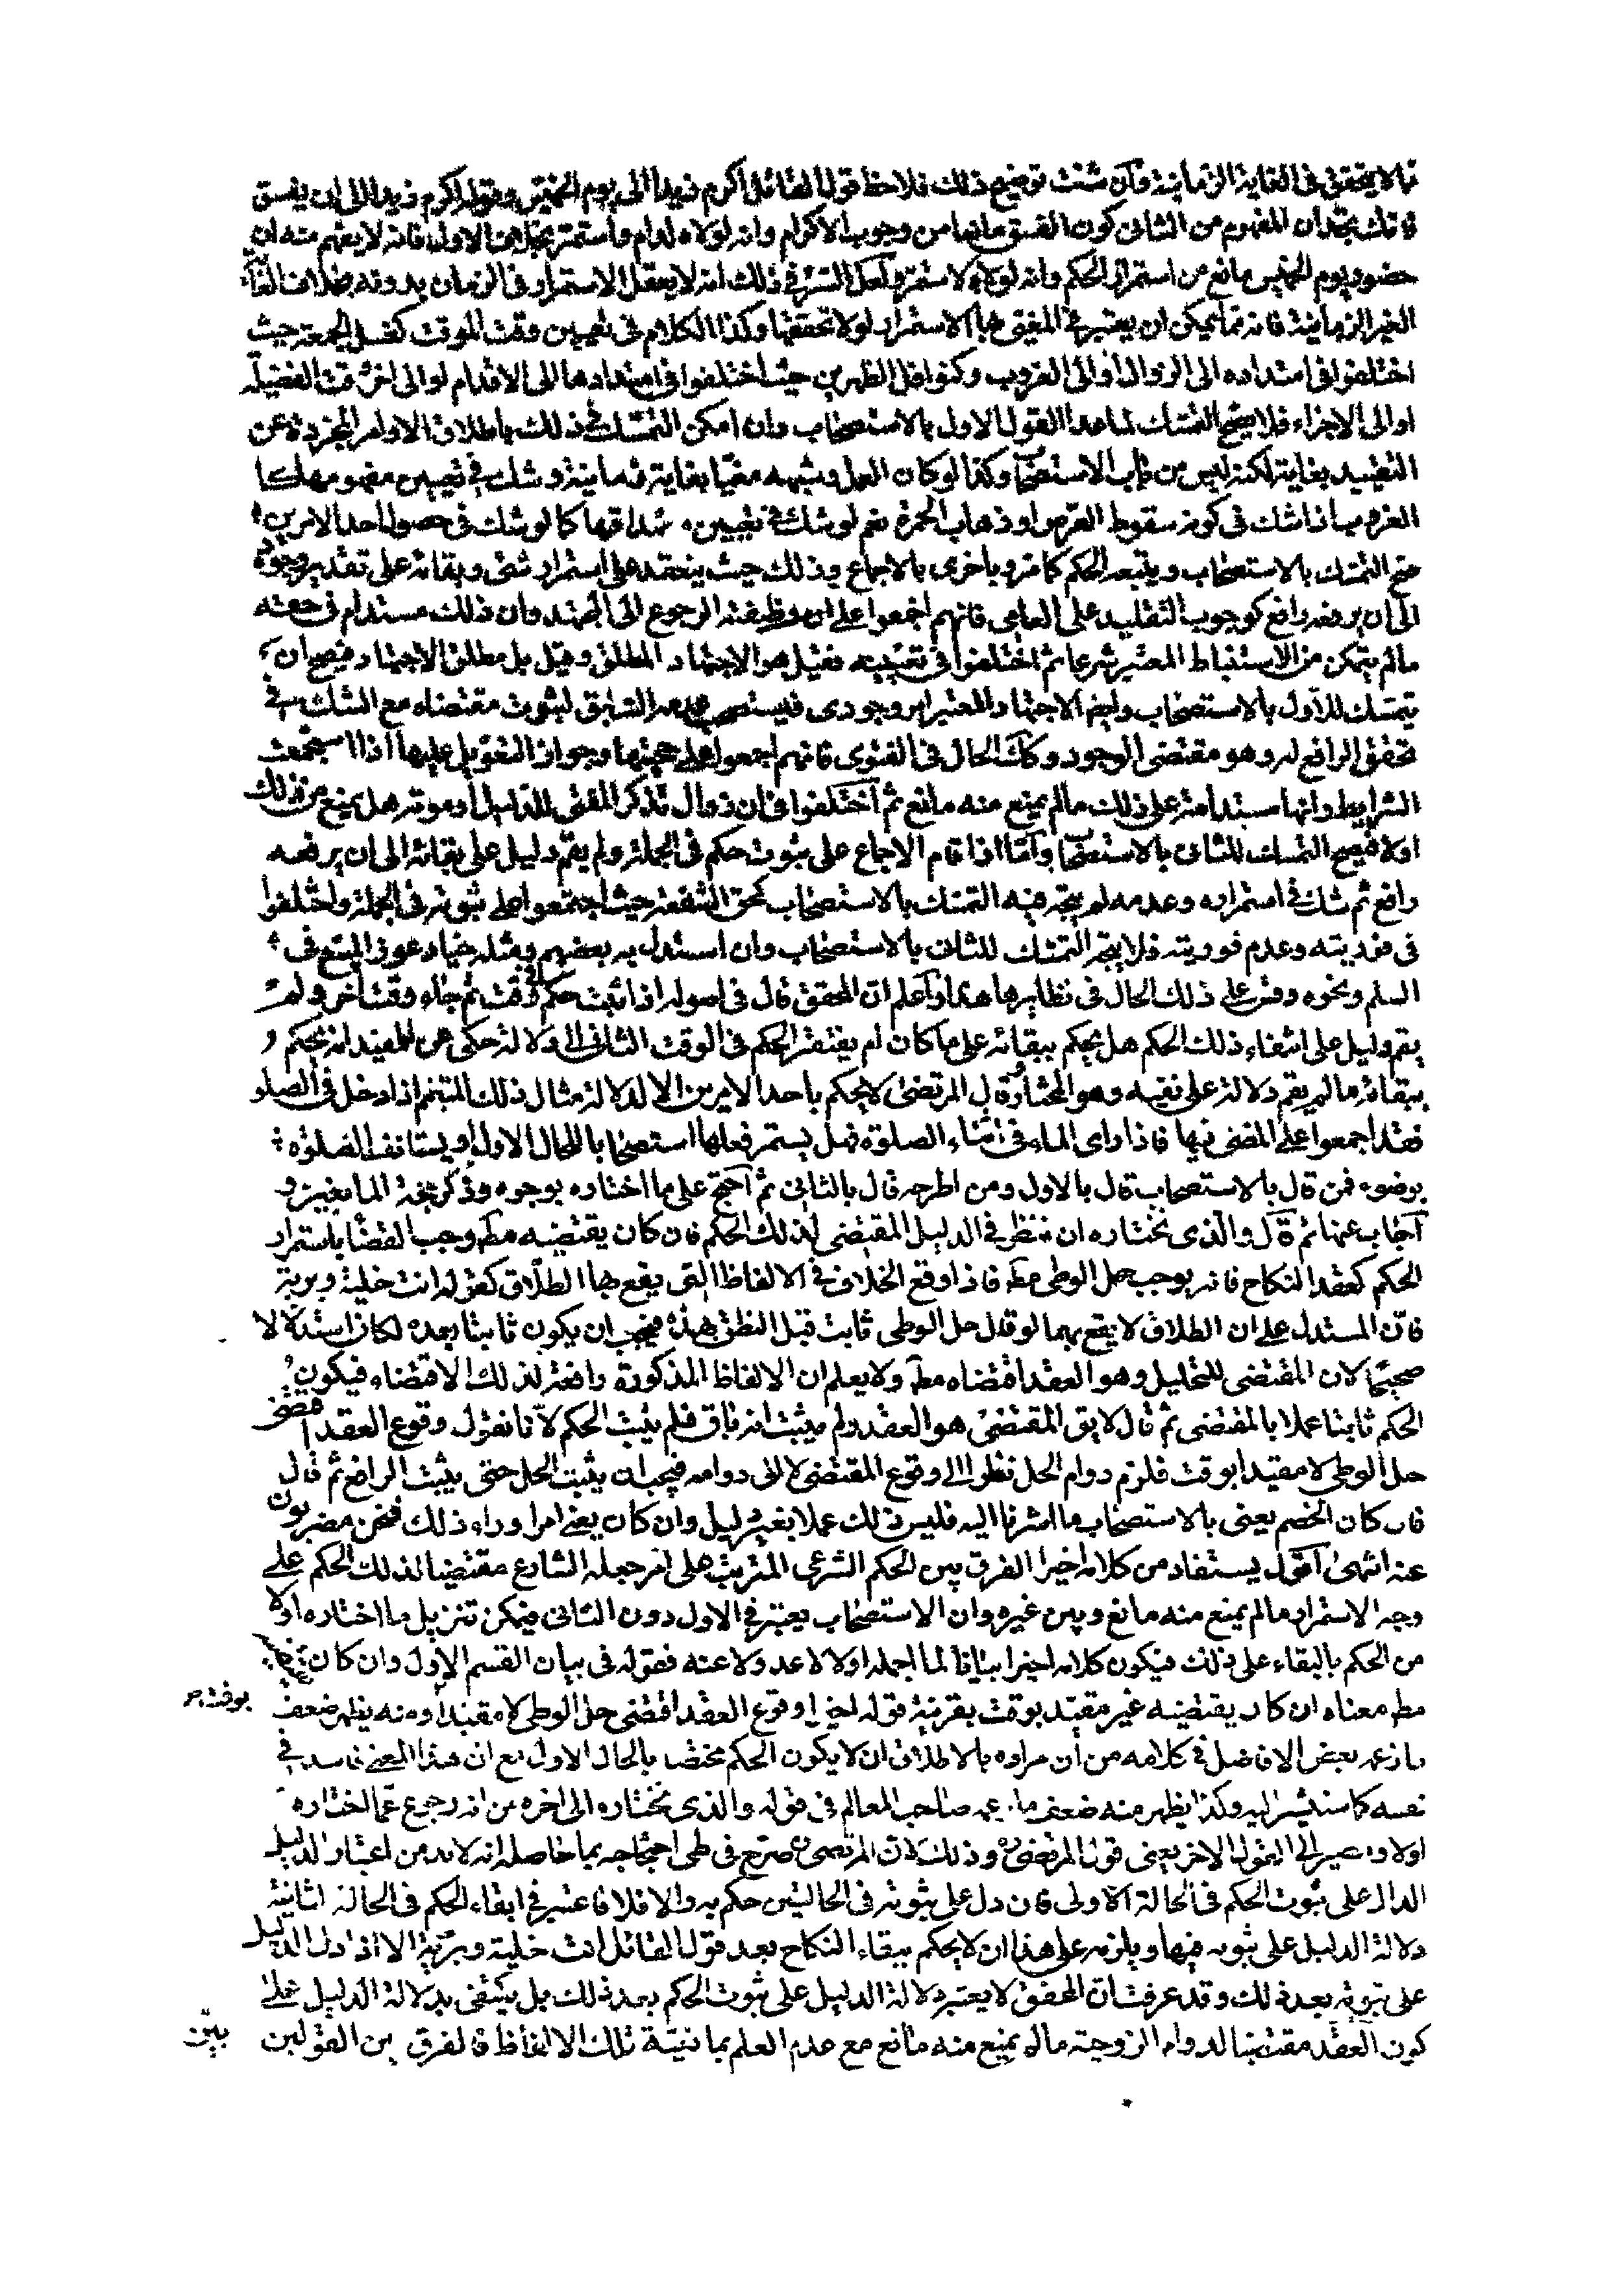 مما لا يتحقق فى الغاية الزمانية وان شئت توضيح ذلك فلاحظ قول القائل اكرم زيدا الى يوم الخميس وقوله اكرم زيدا الى ان يفسق
فانك تجد ان المفهوم من الثانى كون الفسق مانعا من وجوب الاكرام وانه لولاه لدام واستمر بخلاف الاول فانه لا يفهم منه ان
حضور يوم الخميس مانع من استمرار الحكم وانه لولاه لاستمر ولعل السر فى ذلك انه لا يعقل الاستمرار فى الزمان بدونه بخلاف الغاية
الغير الزمانية فانه مما يمكن ان يعتبر فى المغيى بها الاستمرار لولا تحققها وكذا الكلام فى تعيين وقت الموقت كغسل الجمعة حيث
اختلفوا فى امتداده الى الزوال او الى الغروب وكنوافل الظهرين حيث اختلفوا فى امتدادها الى الاقدام او الى اخر وقت الفضيلة
او الى الاجزاء فلا يصح التمسك لما عدا القول الاول بالاستصحاب وان امكن التمسك فى ذلك باطلاق الاوامر المجردة عن
التقييد بغاية لكنه ليس من باب الاستصحاب وكذا لو كان العمل وشبهه مغيا بغاية زمانية وشك فى تعيين مفهومها كا
الغروب اذا شك فى كونه سقوط القرص او ذهاب الحمرة نعم لو شك فى تعيين مصداقها كما لو شك فى حصول احد الامرين
صح التمسك بالاستصحاب ويتبعه الحكم كما مر وباخرى بالاجماع وذلك حيث ينعقد على استمرار شئ وبقائه على تقدير وجوده
الى ان يرفعه رافع كوجوب التقليد على العامى فانهم اجمعوا على ان وظيفته الرجوع الى المجتهد وان ذلك مستدام فى حقه
ما لم يتمكن من الاستنباط المعتبر شرعا ثم اختلفوا فى تعيينه فقيل هو الاجتهاد المطلق وقيل بل مطلق الاجتهاد فيصح ان
يتمسك للاول بالاستصحاب وايضا الاجتهاد المعتبر امر وجودى فيستصحب عدمه السابق لثبوت مقتضاه مع الشك فى
تحقق الرافع له وهو مقتضى الوجود وكك الحال فى الفتوى فانهم اجمعوا على حجيتها وجواز التعويل عليها اذا استجمعت
الشرايط وانها مستدامة على ذلك ما لم يمنع منه مانع ثم اختلفوا فى ان زوال تذكر المفتى للدليل او موته هل يمنع من ذلك
او لا فيصح التمسك للثانى بالاستصحاب واما اذا قام الاجماع على ثبوت حكم فى الجملة ولم يقم دليل على بقائه الى ان يرفعه
رافع ثم شك فى استمراره وعدمه لم يتجه فيه التمسك بالاستصحاب كحق الشفعة حيث اجتمعوا على ثبوته فى الجملة واختلفوا
فى فوريته وعدم فوريته فلا يتجه التمسك للثانى بالاستصحاب وان استدل به بعضهم ومثله خيار دعوى البيع فى
السلم ونحوه وقس على ذلك الحال فى نظايرها هذا واعلم ان المحقق قال فى اصوله اذا ثبت حكم فى وقت ثم جاء وقت اخر ولم
يقم دليل على انتفاء ذلك الحكم هل يحكم ببقائه على ما كان ام يفتقر الحكم فى الوقت الثانى الى دلالة حكى عن المفيد انه يحكم
ببقائه ما لم يقم دلالة على نفيه وهو المختار وقال المرتضى لا يحكم باحد الامرين الا لدلالة مثال ذلك المتيمم اذا دخل فى الصلو
فقد اجمعوا على المضى فيها فاذا راى الماء فى اثناء الصلوة فهل يستمر فعلها استصحابا للحال الاول او يستانف الصلوة
بوضوء فمن قال بالاستصحاب قال بالاول ومن اطرحه قال بالثانى ثم احتج على ما اختاره بوجوه وذكر حجة المانعين و
اجاب عنها ثم قال والذى نختاره ان ننظر فى الدليل المقتضى لذلك الحكم فان كان يقتضيه مطه وجب القضاء باستمرار
الحكم كعقد النكاح فانه يوجب حل الوطى مطه فاذا وقع الخلاف فى الالفاظ التى يقع بها الطلاق كقوله انت خلية وبرية
فان المستدل على ان الطلاق لا يقع بهما لو قال حل الوطى ثابت قبل النطق بهذه فيجب ان يكون ثابتا بعده لكان استدلالا
صحيحا لان المقتضى للتحليل وهو العقد اقتضاه مطه ولا يعلم ان الالفاظ المذكورة رافعة لذلك الاقتضاء فيكون
الحكم ثابتا عملا بالمقتضى ثم قال لا يق المقتضى هو العقد ولم يثبت انه باق فلم يثبت الحكم لانا نقول وقوع العقد اقتضى
حل الوطى لا مقيدا بوقت فلزم دوام الحل نظرا الى وقوع المقتضى لا الى دوامه فيجب ان يثبت الحل حتى يثبت الرافع ثم قال
فان كان الخصم يعنى بالاستصحاب ما اشرنا اليه فليس ذلك عملا بغير دليل وان كان يعنى امرا وراء ذلك فنحن مضربون
عنه انتهى اقول يستفاد من كلامه اخيرا الفرق بين الحكم الشرعى المترتب على امر جعله الشارع مقتضيا لذلك الحكم على
وجه الاستمرار ما لم يمنع منه مانع وبين غيره وان الاستصحاب يعتبر فى الاول دون الثانى فيمكن تنزيل ما اختاره اولا
من الحكم بالبقاء على ذلك فيكون كلامه اخيرا بيانا لما اجمله اولا لا عدولا عنه فقوله فى بيان القسم الاول وان كان يقتضيه
مطه معناه ان كان يقتضيه غير مقيد بوقت بقرينة قوله اخيرا وقوع العقد اقتضى حل الوطى لا مقيدا ومنه يظهر ضعف
بوقت
ما زعمه بعض الافاضل فى كلامه من ان مراده بالاطلاق ان لا يكون الحكم مختصا بالحال الاول مع ان هذا المعنى فاسد فى
نفسه كما سنشير اليه وكذا يظهر منه ضعف ما زعمه صاحب المعالم فى قوله والذى نختاره الى اخره من انه رجوع عما اختاره
اولا ومصير الى القول الاخر يعنى قول المرتضى وذلك لان المرتضى صرح فى طى احتجاجه بما حاصله انه لا بد من اعتبار الدليل
الدال على ثبوت الحكم فى الحالة الاولى فان دل على ثبوته فى الحالتين حكم به والا فلا فاعتبر فى ابقاء الحكم فى الحالة الثانية
دلالة الدليل على ثبوته فيها ويلزمه على هذا ان لا يحكم ببقاء النكاح بعد قول القائل انت خلية وبرية الا اذا دل الدليل
على ثبوته بعد ذلك وقد عرفت ان المحقق لا يعتبر دلالة الدليل على ثبوت الحكم بعد ذلك بل يكتفى بدلالة الدليل على
كون العقد مقتضيا لدوام الزوجية ما لم يمنع منه مانع مع عدم العلم بمانعية تلك الالفاظ فالفرق بين القولين
بين